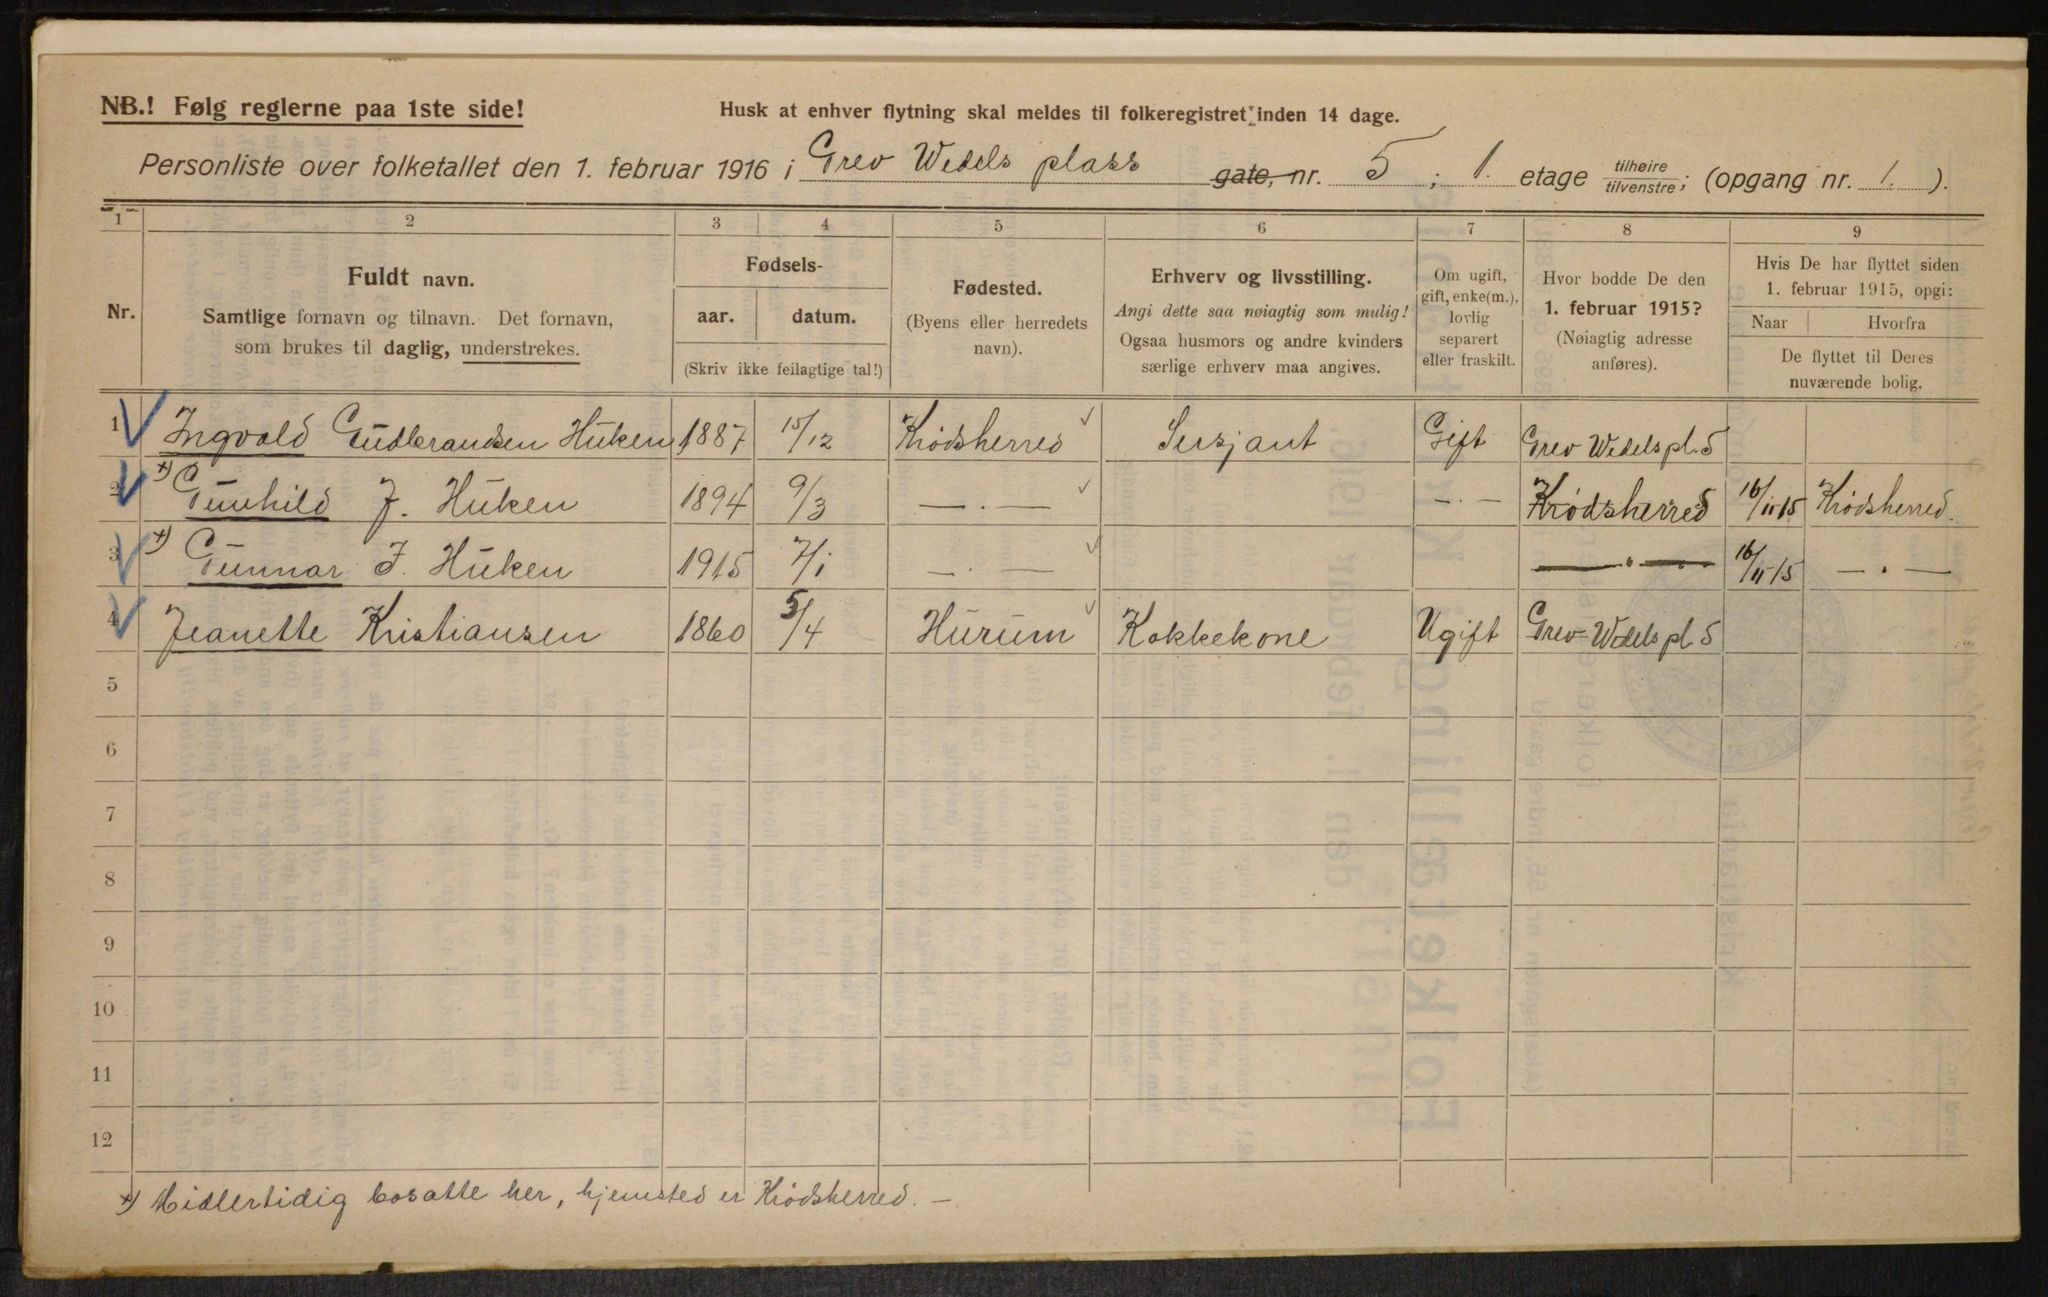 NB.! Følg reglerne paa 1ste side!
Husk at enhver flytning skal meldes til folkeregistret inden 14 dage.
Personliste over folketallet den 1. februar 1916 i Grev Wedels plass gate, nr. 5 ; 1. etage tilhøire tilvenstre; (opgang nr. 1. ).
1 2 3 4 5 6 7 8 9
Nr.
Fuldt navn.
Samtlige fornavn og tilnavn. Det fornavn,
som brukes til daglig, understrekes.
Fødsels-
aar. datum.
(Skriv ikke feilagtige tal!)
Fødested.
(Byens eller herredets
navn).
Erhverv og livsstilling.
Angi dette saa nøiagtig som mulig!
Ogsaa husmors og andre kvinders
særlige erhverv maa angives.
Om ugift,
gift, enke(m.),
lovlig
separert
eller fraskilt.
Hvor bodde De den
1. februar 1915?
(Nøiagtig adresse
anføres).
Hvis De har flyttet siden
1. februar 1915, opgi:
Naar Hvorfra
De flyttet til Deres
nuværende bolig.
1 Ingvald Gudbrandsen Huken 1887 15/12 Krødsherred Sersjant Gift Grev Wedels pl. 5
2 *) Gunhild J. Huken 1894 9/3 — . — — . — Krødsherred 16/11 15 Krødsherred.
3 *) Gunnar I. Huken 1915 7/1 — . — — . — 16/11 15 — . —
4 Jeanette Kristiansen 1860 5/4 Hurum Kokkekone Ugift Grev Wedels pl. 5
5
6
7
8
9
10
11
12
*) Midlertidig bosatte her, hjemsted er Krødsherred. —